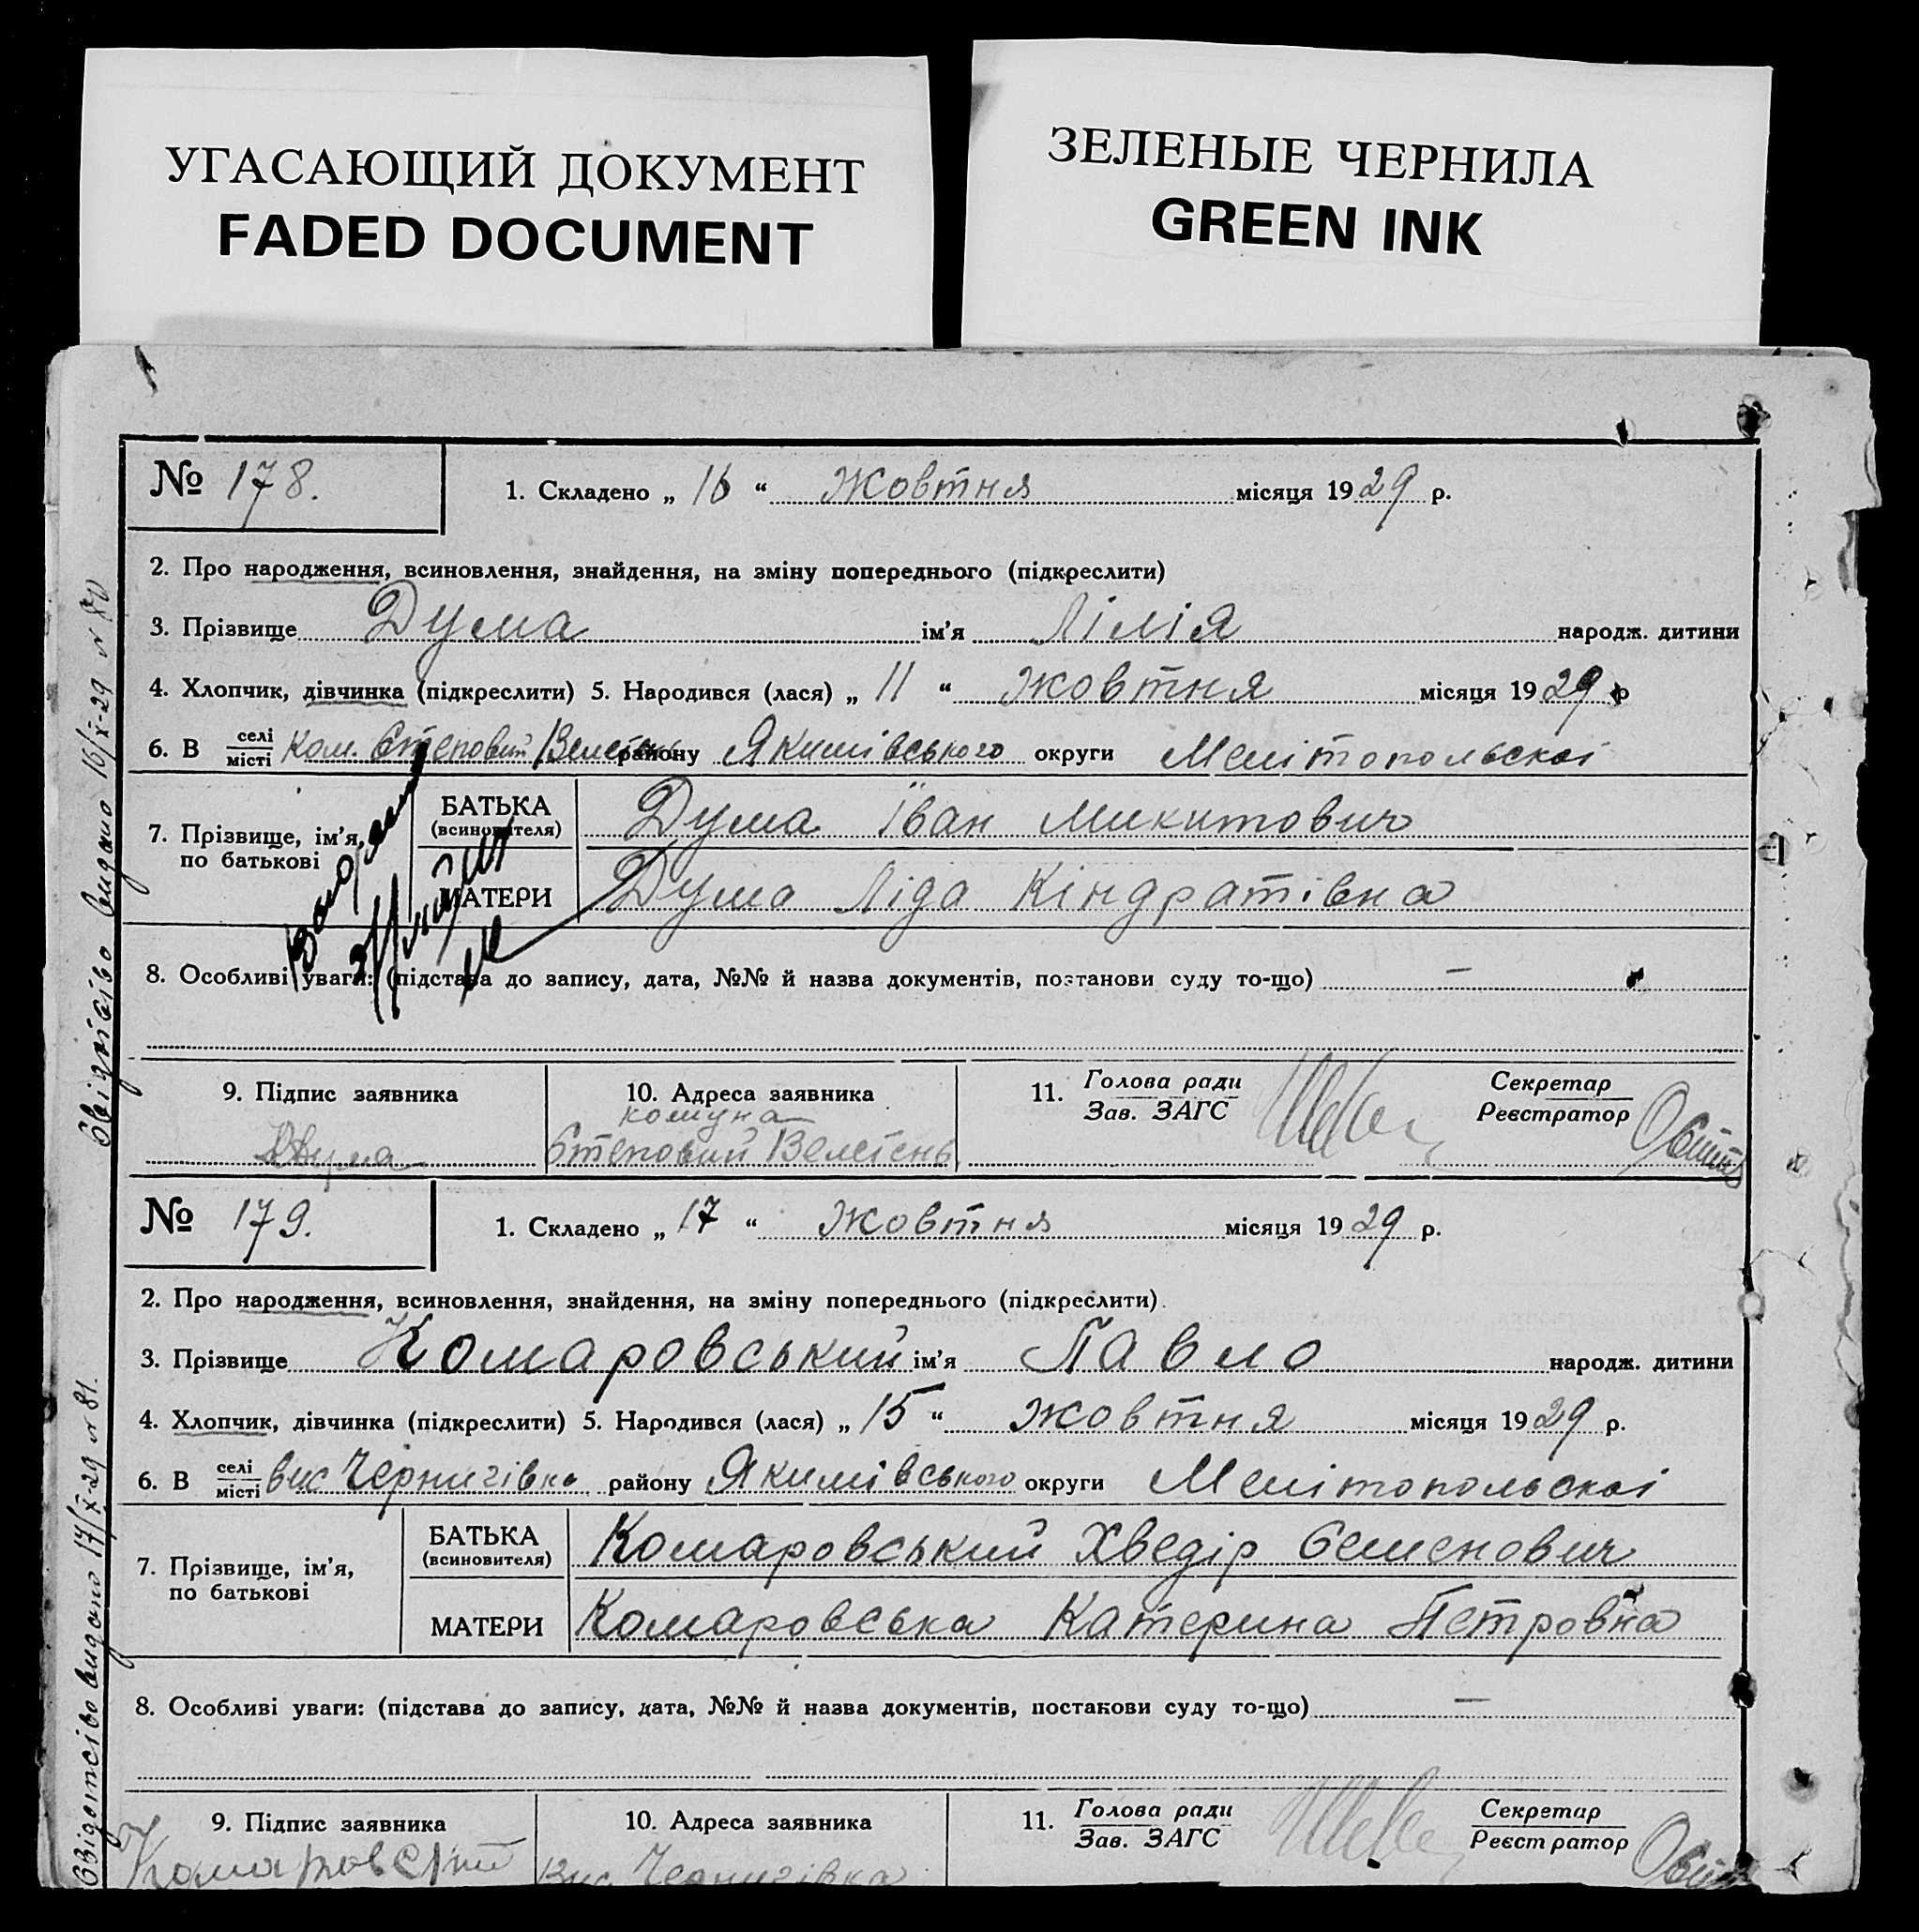 УГАСАЮЩИЙ ДОКУМЕНТ
FADED DOCUMENT
ЗЕЛЕНЫЕ ЧЕРНИЛА
GREEN INK
№ 178.
1. Складено „ 16 “ Жовтня місяця 1929 р.
2. Про народження, всиновлення, знайдення, на зміну попереднього (підкреслити)
3. Прізвище Дума ім'я Лілія народж. дитини
4. Хлопчик, дівчинка (підкреслити) 5. Народився (лася) „ 11 “ жовтня місяця 1929 р
6. В селі місті Ком. Степовий Велетень району Якимівського округи Мелітопольскої
7. Прізвище, ім'я, по батькові
БАТЬКА (всиновителя) Дума Іван Микитович
МАТЕРИ Дума Ліда Кіндратівна
8. Особливі уваги: (підстава до запису, дата, №№ й назва документів, постанови суду то-що) —
9. Підпис заявника
Дума
10. Адреса заявника
комуна
Степовий Велетень
11. Голова ради
Зав. ЗАГС
Секретар
Реєстратор
Свідоцтво видано 16/X-29 № 80
№ 179.
1. Складено „ 17 “ Жовтня місяця 1929 р.
2. Про народження, всиновлення, знайдення, на зміну попереднього (підкреслити).
3. Прізвище Комаровський ім'я Павло народж. дитини
4. Хлопчик, дівчинка (підкреслити) 5. Народився (лася) „ 15 “ жовтня місяця 1929 р.
6. В селі місті вис Чернигівка району Якимівського округи Мелітопольскої
7. Прізвище, ім'я, по батькові
БАТЬКА (всиновителя) Комаровський Хведір Семенович
МАТЕРИ Комаровська Катерина Петровна
8. Особливі уваги: (підстава до запису, дата, №№ й назва документів, постанови суду то-що) —
9. Підпис заявника
10. Адреса заявника
Вис. Чернигівка
11. Голова ради
Зав. ЗАГС
Секретар
Реєстратор
Свідоцтво видано 17/X-29 № 81.